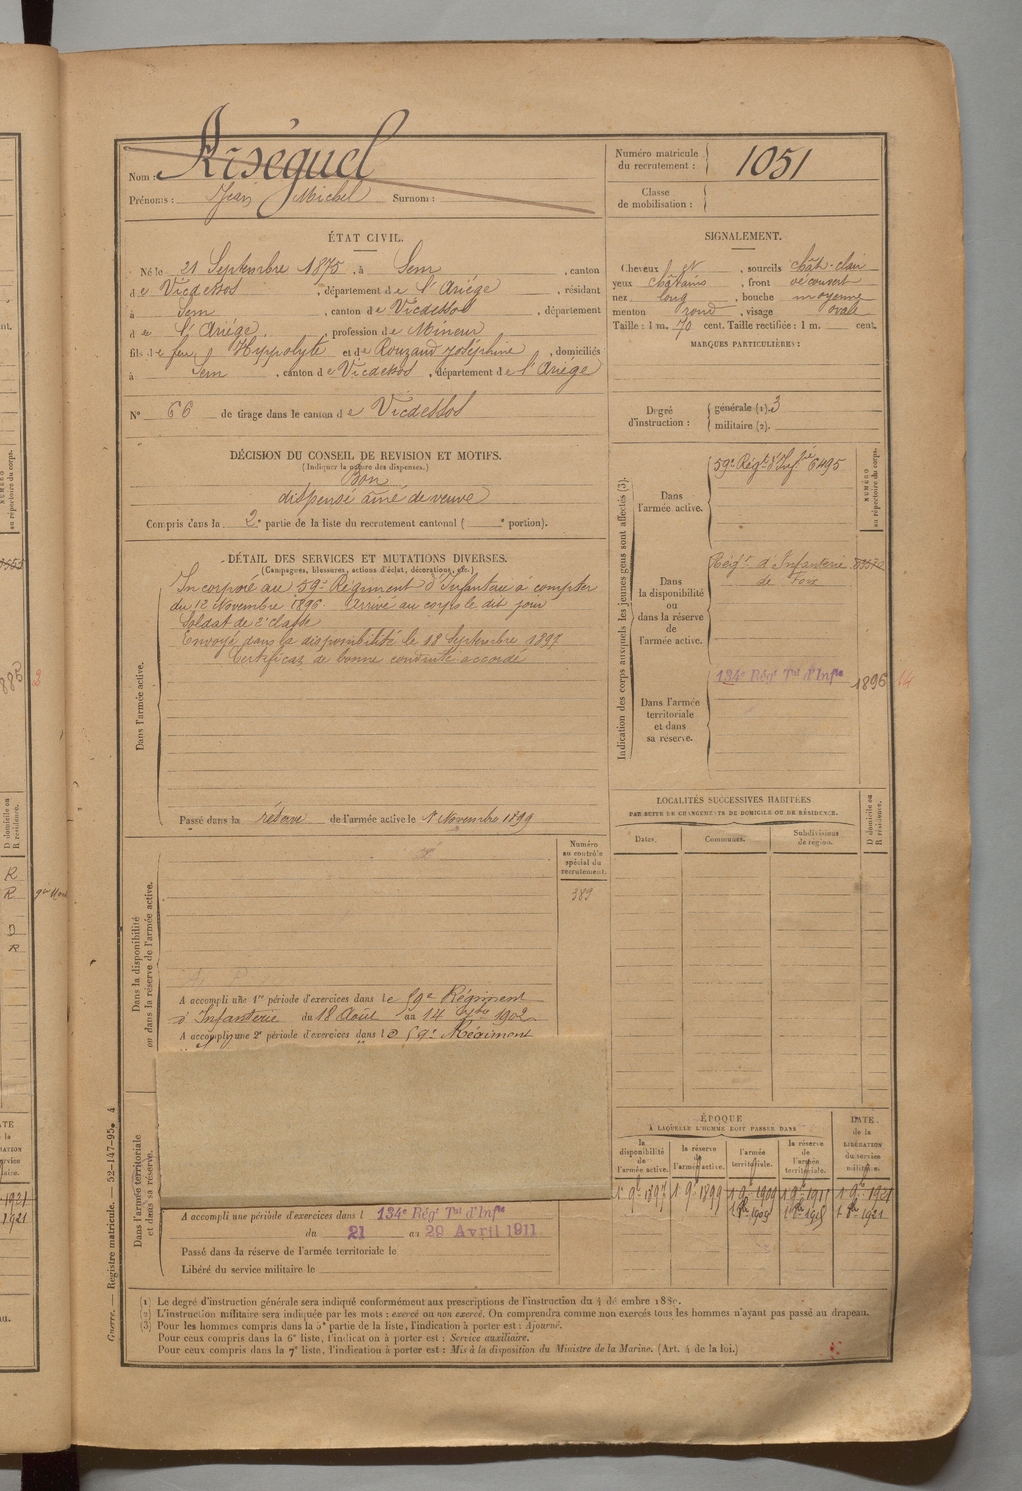 Riséguel
Nom :
Prénoms : Jean Michel Surnom :
Numéro matricule du recrutement : 1051
Classe de mobilisation :
ÉTAT CIVIL.
Né le 21 Septembre 1875, à Sem, canton
de Vicdessos, département de l'Ariége, résidant
à Sem, canton de Vicdessos, département
de l'Ariége, profession de Mineur
fils de feu Hyppolyte et de Rouzaud Joséphine, domiciliés
à Sem, canton de Vicdessos, département de l'Ariége
N° 66 de tirage dans le canton de Vicdessos
SIGNALEMENT.
Cheveux et, sourcils chât-clair
yeux châtains, front découvert
nez long, bouche moyenne
menton rond, visage ovale
Taille : 1 m. 70 cent. Taille rectifiée : 1 m. cent.
MARQUES PARTICULIÈRES :
Degré d'instruction : générale (1). 3
militaire (2).
DÉCISION DU CONSEIL DE REVISION ET MOTIFS.
(Indiquer la nature des dispenses.)
Bon
dispensé aîné de veuve
Compris dans la 2e partie de la liste du recrutement cantonal ( e portion).
DÉTAIL DES SERVICES ET MUTATIONS DIVERSES.
(Campagnes, blessures, actions d'éclat, décorations, etc.)
Dans l'armée active.
Incorporé au 59e Régiment d'Infanterie à compter
du 12 Novembre 1896. Arrivé au corps le dit jour
Soldat de 2e classe
Envoyé dans la disponibilité le 18 Septembre 1897
Certificat de bonne conduite accordé
Passé dans la réserve de l'armée active le 1 Novembre 1899
Indication des corps auxquels les jeunes gens sont affectés (3).
NUMÉRO au répertoire du corps.
Dans l'armée active.
59e Régt d'Infie 6495
Dans la disponibilité ou dans la réserve de l'armée active.
Régt d'Infanterie
de Foix
Dans l'armée territoriale et dans sa réserve.
134e Régt Tal d'Infie 1896 14
LOCALITÉS SUCCESSIVES HABITÉES
PAR SUITE DE CHANGEMENTS DE DOMICILE OU DE RÉSIDENCE.
Dates. Communes. Subdivisions de région. D domicile ou R résidence.
Dans la disponibilité ou dans la réserve de l'armée active.
Numéro au contrôle spécial du recrutement.
389
A accompli une 1re période d'exercices dans le 59e Régiment
d'Infanterie du 18 Août au 14 7bre 1902
A accompli une 2e période d'exercices dans le 59e Régiment
Dans l'armée territoriale et dans sa réserve.
A accompli une période d'exercices dans l 134e Régt Tal d'Infie
du 21 au 29 Avril 1911
Passé dans la réserve de l'armée territoriale le
Libéré du service militaire le
ÉPOQUE
À LAQUELLE L'HOMME DOIT PASSER DANS
la disponibilité de l'armée active. la réserve de l'armée active. l'armée territoriale. la réserve de l'armée territoriale.
DATE de la LIBÉRATION du service militaire.
1 9e 1897 1 9e 1899 1 9e 1909 1 9e 1915 1 9e 1921
1 8e 1909 1 8e 1915 1 8e 1921
(1) Le degré d'instruction générale sera indiqué conformément aux prescriptions de l'instruction du 4 décembre 1889.
(2) L'instruction militaire sera indiquée par les mots : exercé ou non exercé. On comprendra comme non exercés tous les hommes n'ayant pas passé au drapeau.
(3) Pour les hommes compris dans la 5e partie de la liste, l'indication à porter est : Ajourné.
Pour ceux compris dans la 6e liste, l'indication à porter est : Service auxiliaire.
Pour ceux compris dans la 7e liste, l'indication à porter est : Mis à la disposition du Ministre de la Marine. (Art. 4 de la loi.)
Guerre. — Registre matricule. — 52-147-95. 4